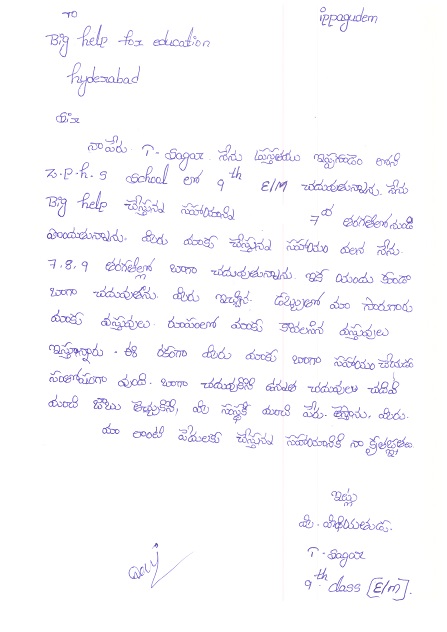 To
ippagudem
Big help for education
hyderabad
Sir
నా పేరు T. Sagar. నేను ప్రస్తుతము ఇప్పగూడెం లోని
Z.P.H.S School లో 9th E/M చదువుతున్నాను. నేను
Big help చేస్తున్న సహాయాన్ని 7వ తరగతిలోనుండి
పొందుతున్నాను. మీరు మాకు చేస్తున్న సహాయం వలన నేను.
7.8.9 తరగతిల్లో బాగా చదువుతున్నాను. ఇక యందు కూడా
బాగా చదువుతాను. మీరు ఇచ్చిన డబ్బులతో మా సారుగారు
మాకు వస్తువులు. రూపంలో మాకు కావలసిన వస్తువులు
ఇస్తున్నారు. ఈ రకంగా మీరు మాకు బాగా సహాయం చేయడం
సంతోషంగా వుంది. బాగా చదువుకొని ఉన్నత చదువులు చదివి
మంచి జాబు తెచ్చుకొని, మీ సంస్థకి మంచి పేరు. తెస్తాను. మీరు.
మా లాంటి పేదలకు చేస్తున్న సహాయానికి నా కృతజ్ఞతలు
ఇట్లు
మీ. విధేయుతుడు.
T. Sagar
9th class [E/M].